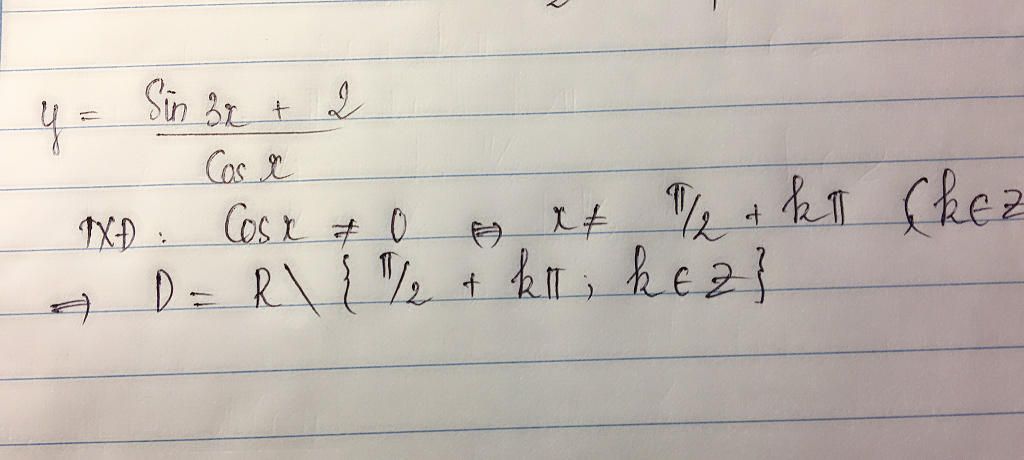 y = Sin 3x + 2
Cos x
TXĐ : Cos x ≠ 0 ⇔ x ≠ π/2 + kπ (k∈Z
⇒ D = R \ { π/2 + kπ ; k ∈ Z }